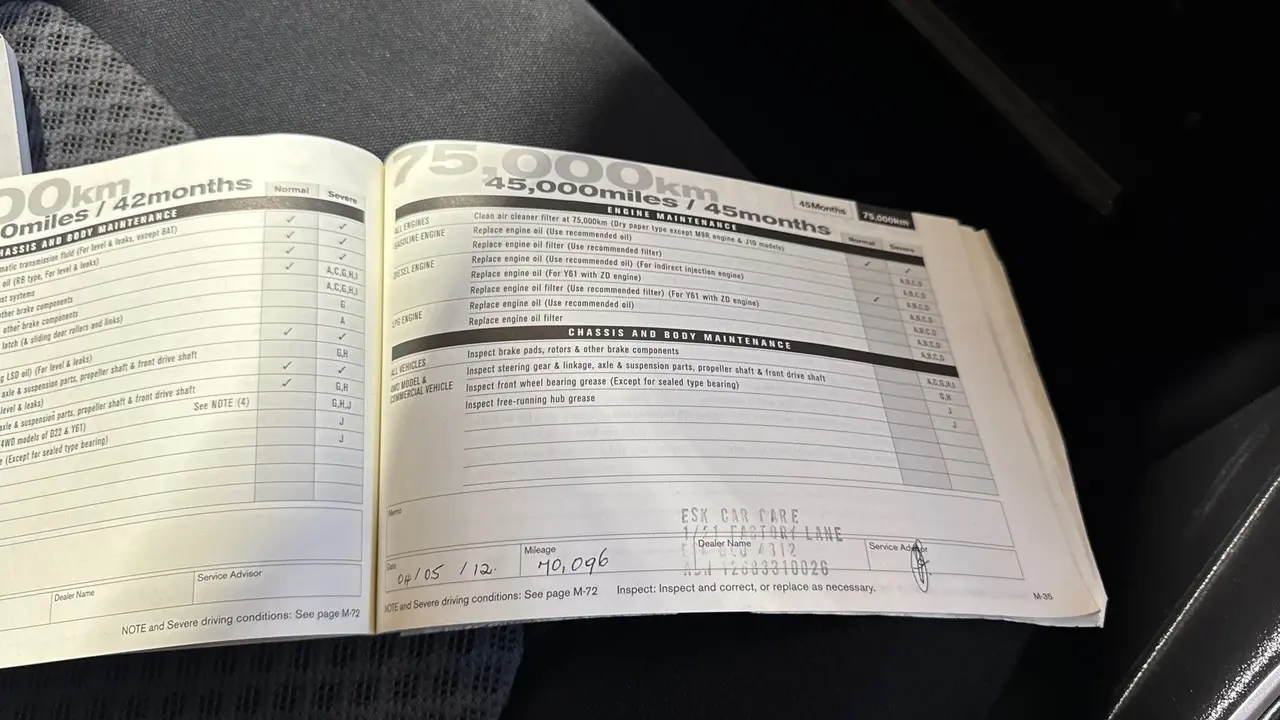 00km
0miles / 42months
Normal
Severe
CHASSIS AND BODY MAINTENANCE
matic transmission fluid (For level & leaks, except 8AT)
oil (RB type, For level & leaks)
ust systems
other brake components
other brake components
latch (& sliding door rollers and links)
g LSD oil) (For level & leaks)
axle & suspension parts, propeller shaft & front drive shaft
level & leaks)
axle & suspension parts, propeller shaft & front drive shaft
See NOTE (4)
4WD models of D22 & Y61)
e (Except for sealed type bearing)
✓ ✓
✓ ✓
✓ ✓
✓ A,C,G,H,I
A,C,G,H,I
G
A
✓ ✓
G,H
✓ ✓
✓ G,H
G,H,J
J
J
Dealer Name
Service Advisor
NOTE and Severe driving conditions: See page M-72
75,000km
45,000miles / 45months
45Months
75,000km
ENGINE MAINTENANCE
Normal
Severe
ALL ENGINES
Clean air cleaner filter at 75,000km (Dry paper type except M9R engine & J10 models)
✓ ✓
GASOLINE ENGINE
Replace engine oil (Use recommended oil)
A,B,C,D
Replace engine oil filter (Use recommended filter)
A,B,C,D
DIESEL ENGINE
Replace engine oil (Use recommended oil) (For indirect injection engine)
✓ A,B,C,D
Replace engine oil (For Y61 with ZD engine)
A,B,C,D
Replace engine oil filter (Use recommended filter) (For Y61 with ZD engine)
A,B,C,D
LPG ENGINE
Replace engine oil (Use recommended oil)
A,B,C,D
Replace engine oil filter
CHASSIS AND BODY MAINTENANCE
ALL VEHICLES
Inspect brake pads, rotors & other brake components
A,C,G,H,I
4WD MODEL &
COMMERCIAL VEHICLE
Inspect steering gear & linkage, axle & suspension parts, propeller shaft & front drive shaft
G,H
Inspect front wheel bearing grease (Except for sealed type bearing)
J
Inspect free-running hub grease
J
Memo
ESK CAR CARE
1/21 FACTORY LANE
QLD 4312
ABN 12683310026
Date
04/05/12.
Mileage
70,096
Dealer Name
Service Advisor
NOTE and Severe driving conditions: See page M-72
Inspect: Inspect and correct, or replace as necessary.
M-35